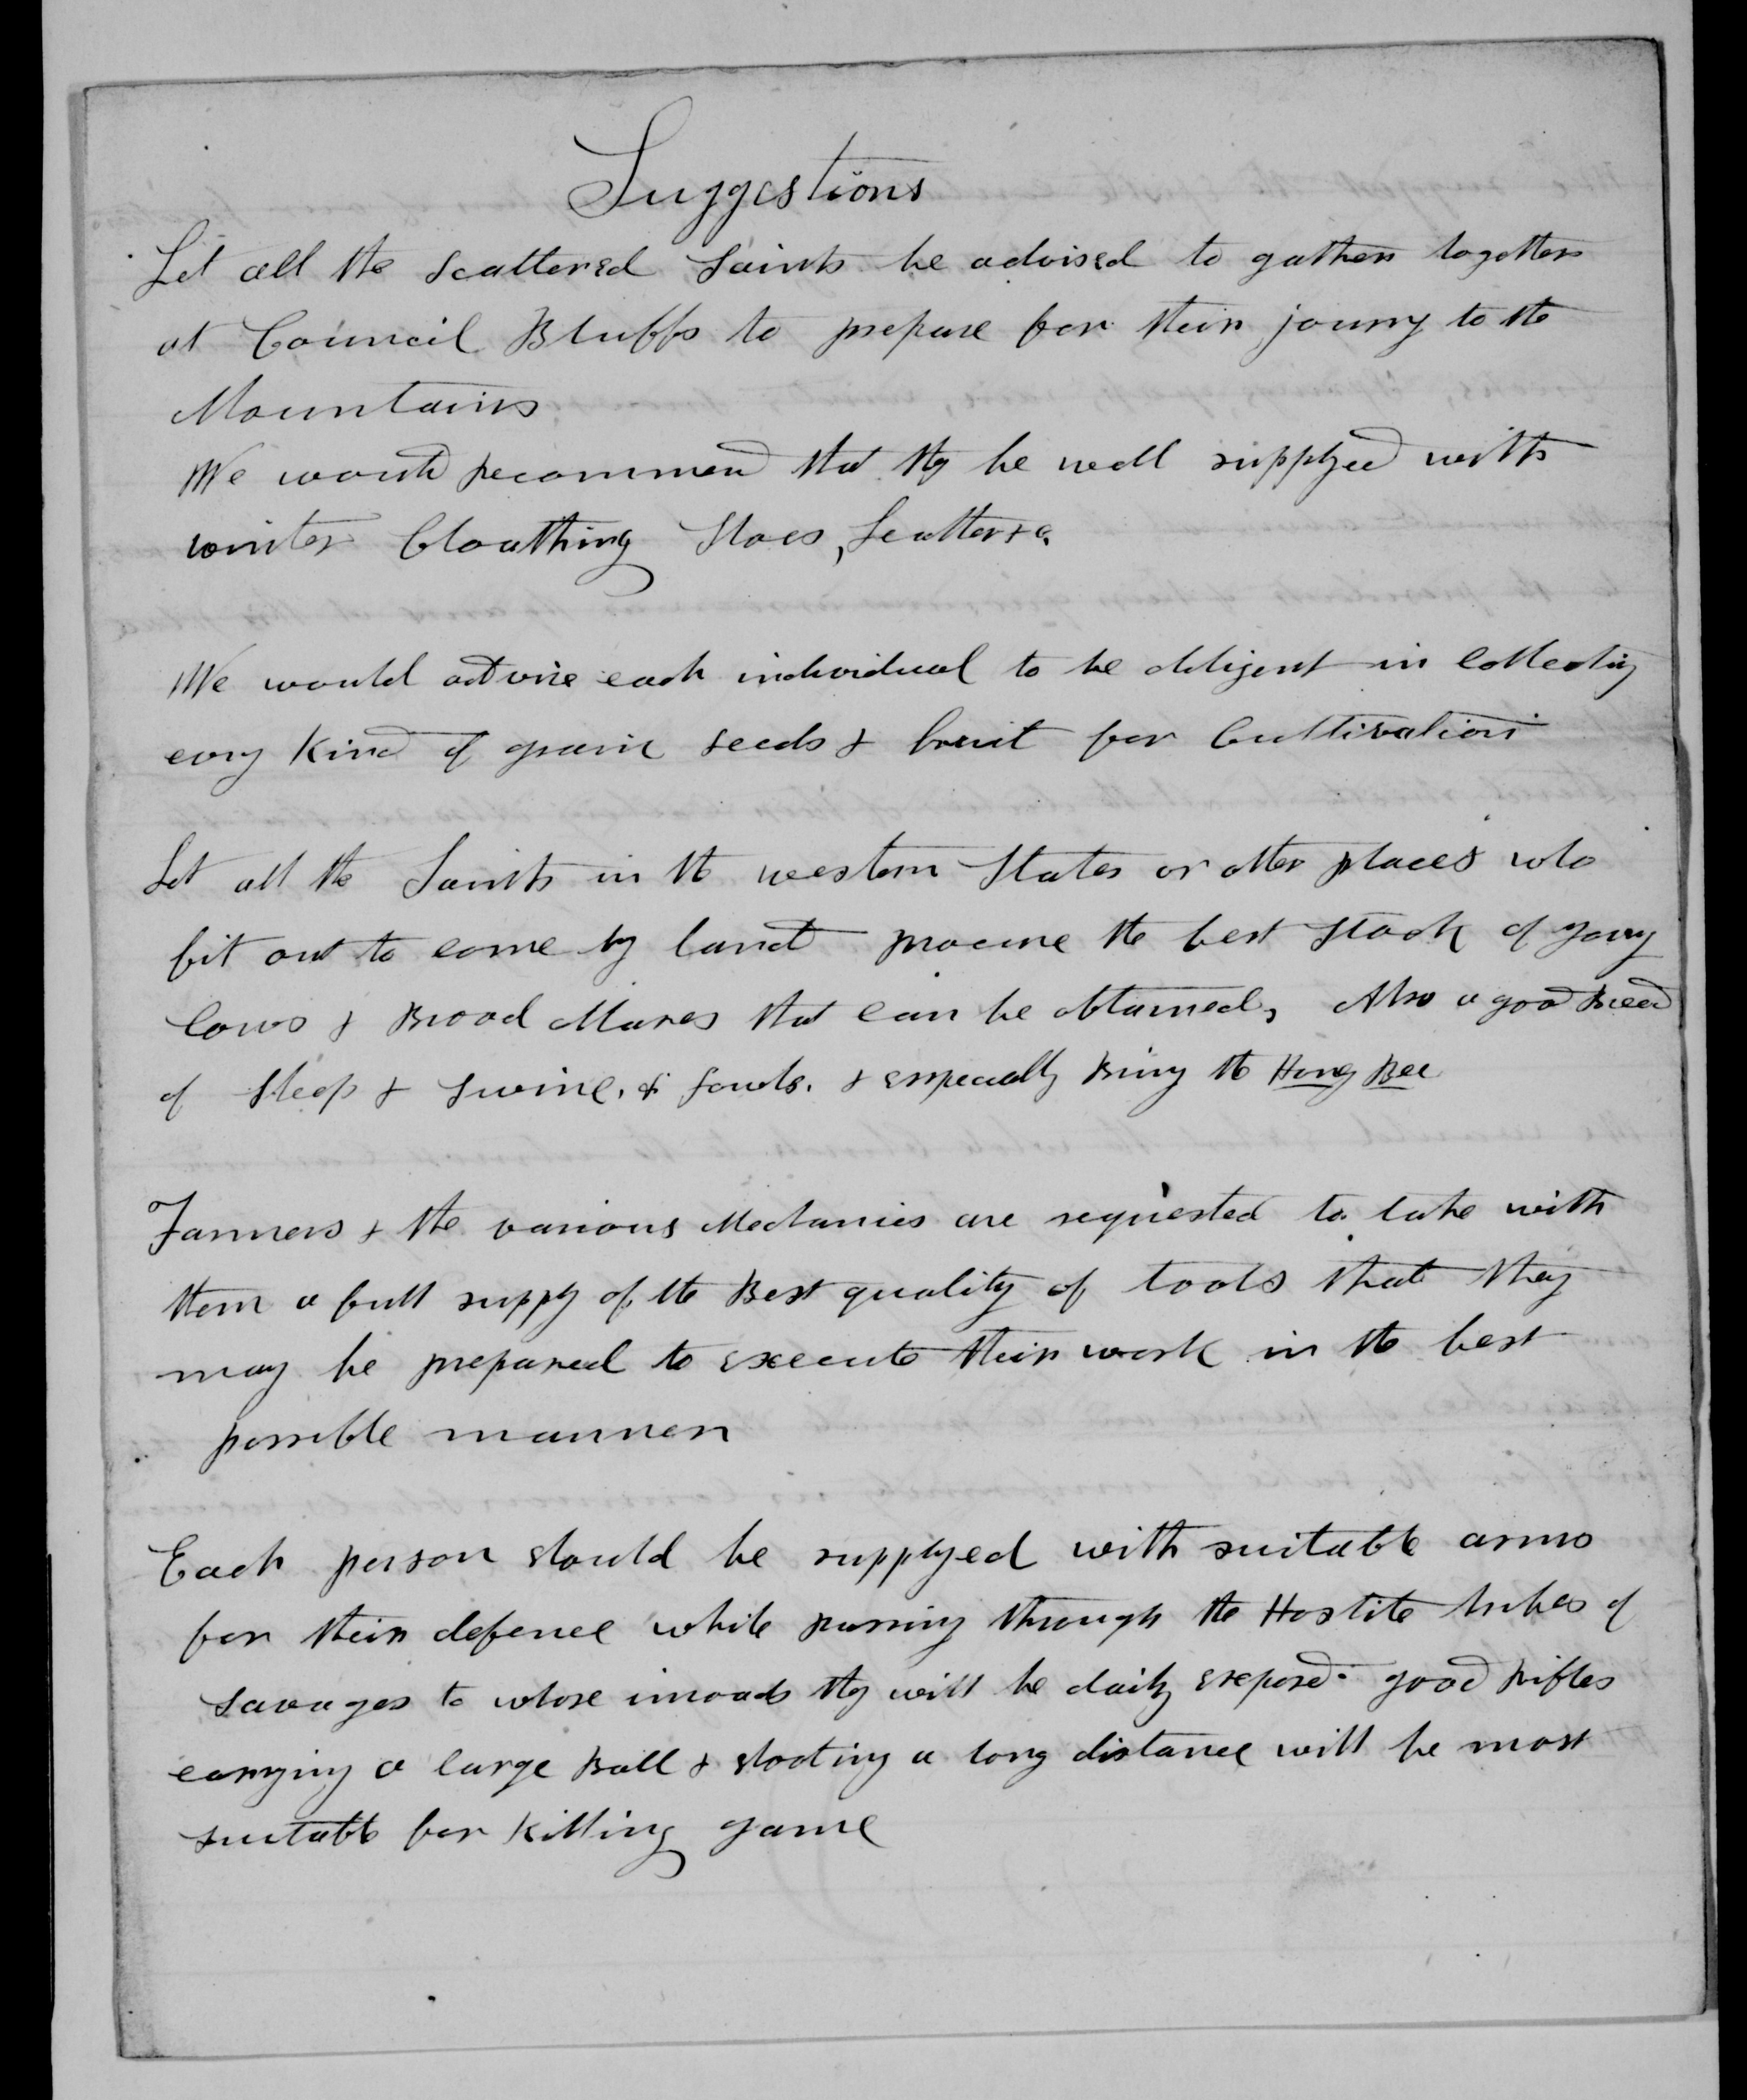 Suggestions
Let all the scattered Saints be advised to gather together
at Council Bluffs to prepare for their journy to the
Mountains
We would recommend that they be well supplyed with
winter Cloathing Shoes, Leather &c.
We would advise each individual to be diligent in collecting
evry Kind of grain seeds & fruit for Cultivation
Let all the Saints in the western States or other places who
fit out to come by land procure the best stock of young
Cows & Brood Mares that can be obtained, Also a good Breed
of sheep & swine. & fowls. & especially Bring the Honey Bee
Farmers & the various Mechanics are requested to take with
them a full supply of the Best quality of tools that they
may be prepared to execute their work in the best
possible manner
Each person should be supplyed with suitable arms
for their defence while passing through the Hostile tribes of
savages to whose inroads they will be daily exposed. good Rifles
carrying a large Ball & shooting a long distance will be most
suitable for Killing game